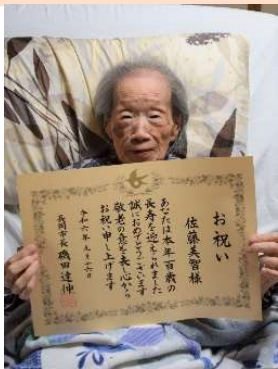 お祝い
佐藤美智様
あなたは本年百歳の
長寿を迎えられました
誠におめでとうございます
敬老の意を表し心から
お祝い申し上げます
令和六年九月十六日
長岡市長 磯田達伸